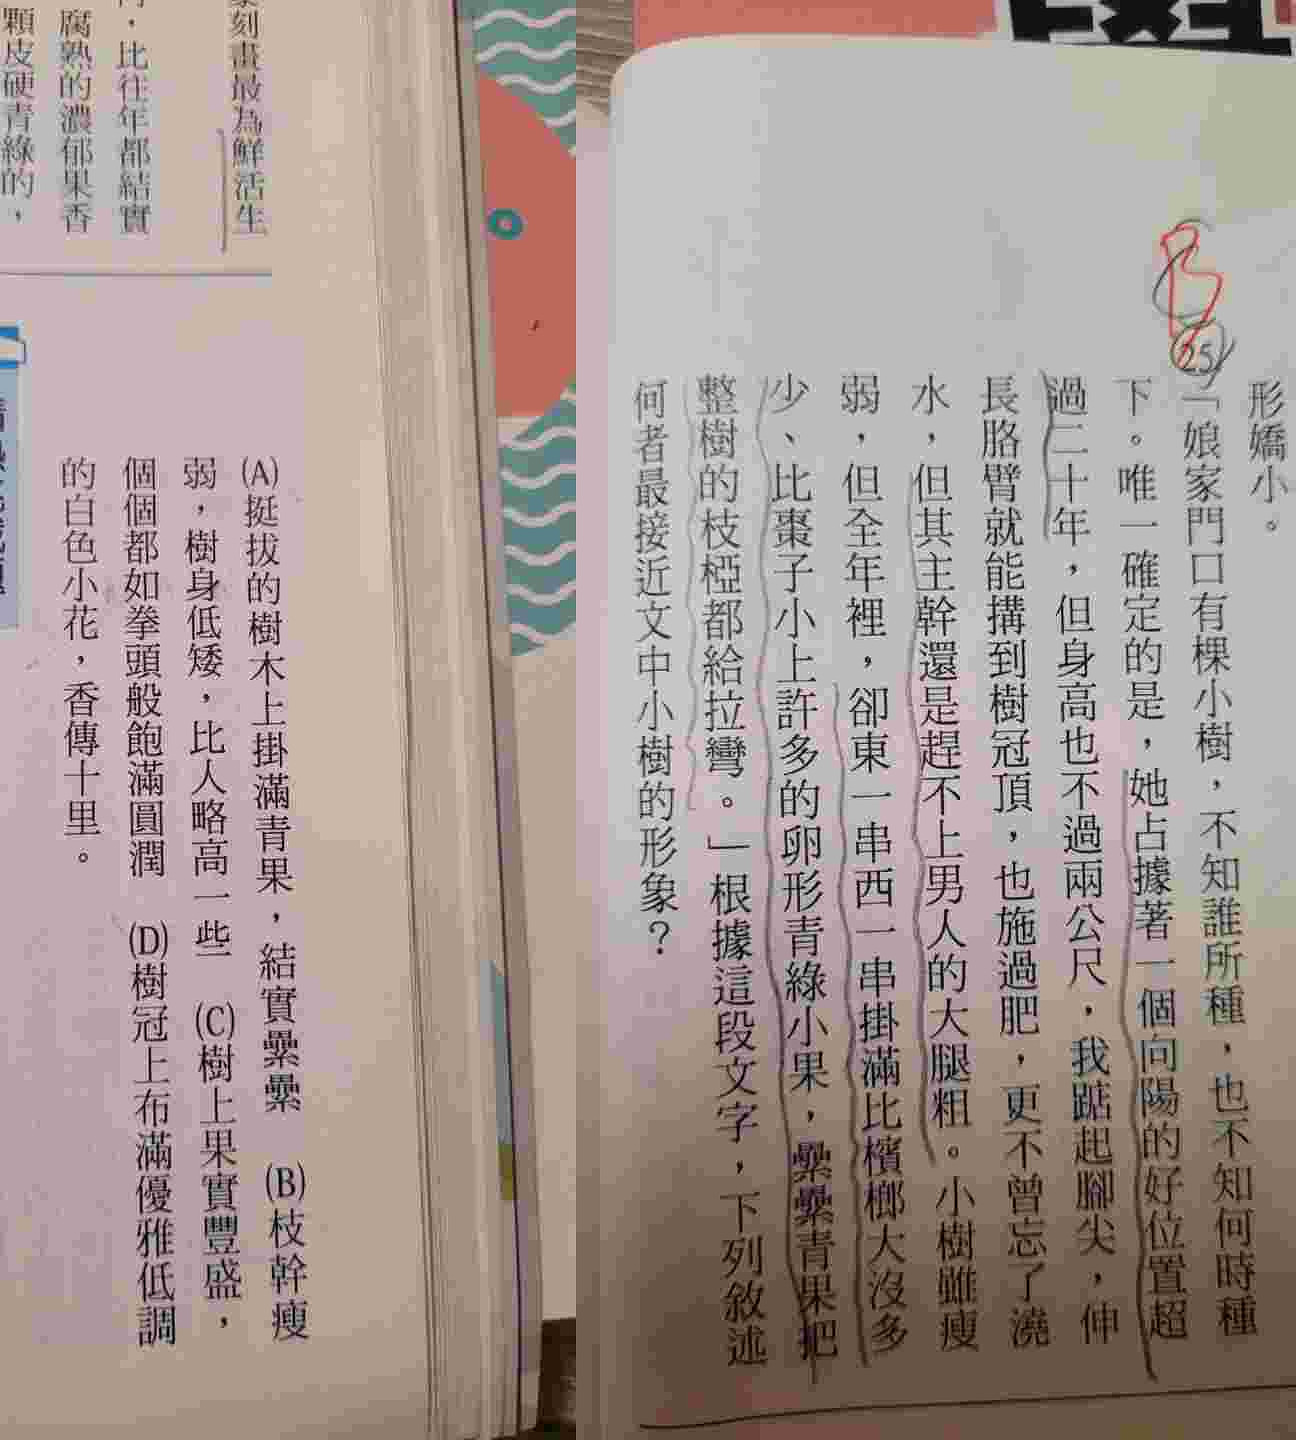 形嬌小。
25
B
「娘家門口有棵小樹，不知誰所種，也不知何時種
下。唯一確定的是，她占據著一個向陽的好位置超
過二十年，但身高也不過兩公尺，我踮起腳尖，伸
長胳臂就能搆到樹冠頂，也施過肥，更不曾忘了澆
水，但其主幹還是趕不上男人的大腿粗。小樹雖瘦
弱，但全年裡，卻東一串西一串掛滿比檳榔大沒多
少、比棗子小上許多的卵形青綠小果，纍纍青果把
整樹的枝椏都給拉彎。」根據這段文字，下列敘述
何者最接近文中小樹的形象？
刻畫最為鮮活生
，比往年都結實
腐熟的濃郁果香
顆皮硬青綠的，
(A)挺拔的樹木上掛滿青果，結實纍纍　(B)枝幹瘦
弱，樹身低矮，比人略高一些　(C)樹上果實豐盛，
個個都如拳頭般飽滿圓潤　(D)樹冠上布滿優雅低調
的白色小花，香傳十里。